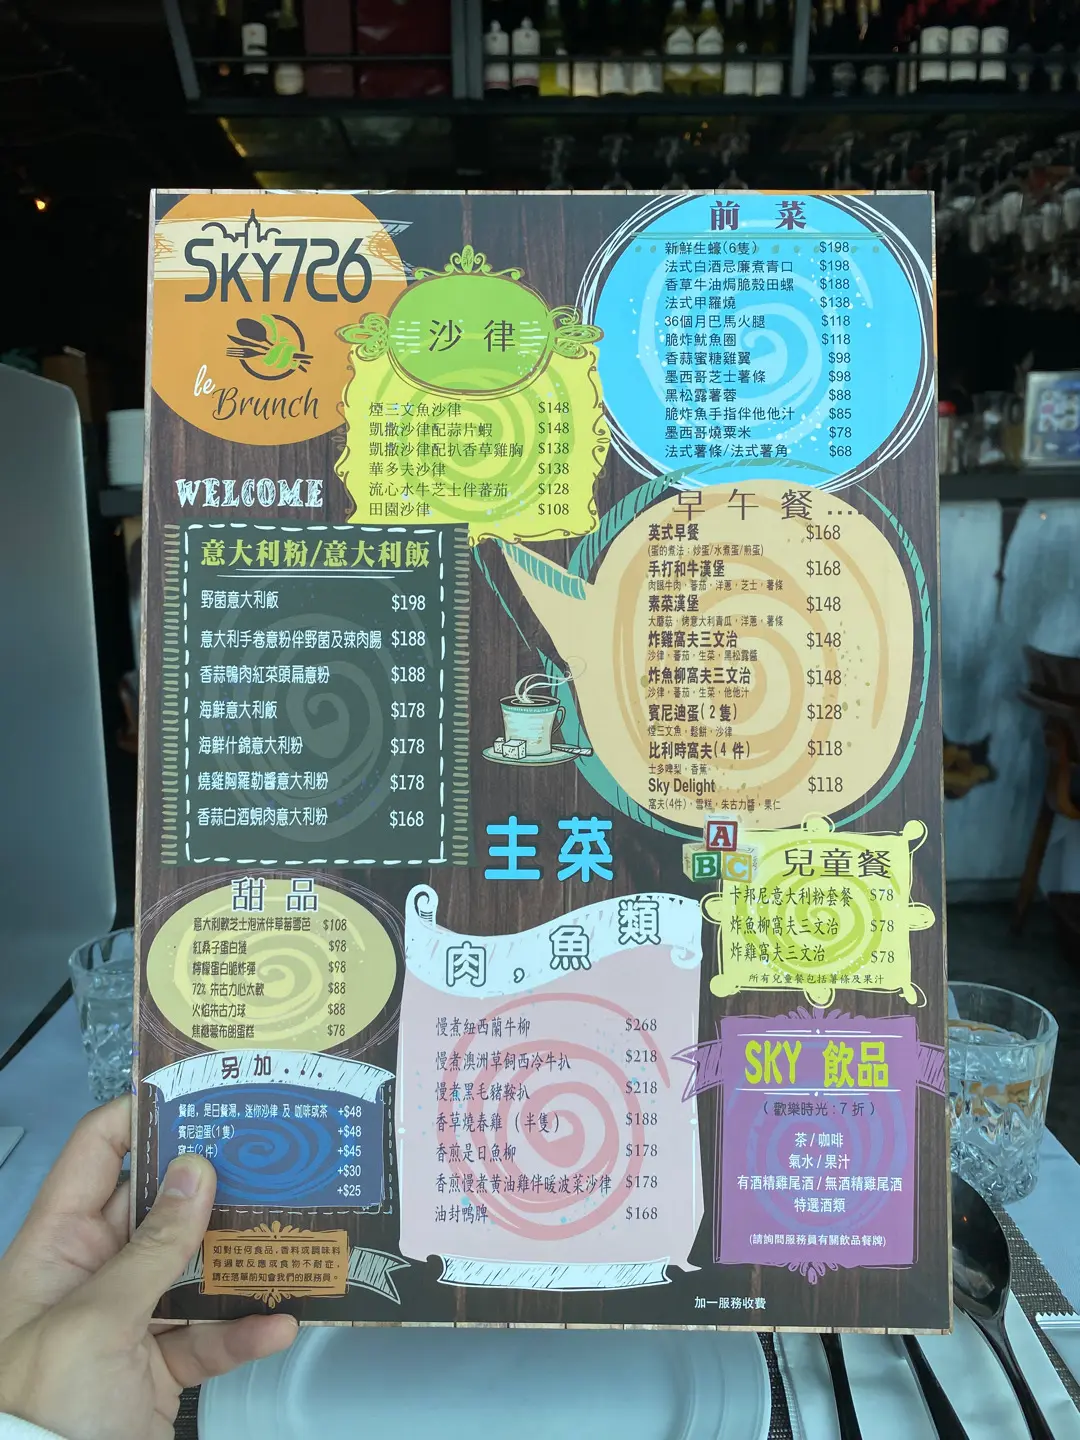 SKY726
le
Brunch
WELCOME
沙律
煙三文魚沙律 $148
凱撒沙律配蒜片蝦 $148
凱撒沙律配扒香草雞胸 $138
華多夫沙律 $138
流心水牛芝士伴蕃茄 $128
田園沙律 $108
前菜
新鮮生蠔(6隻) $198
法式白酒忌廉煮青口 $198
香草牛油焗脆殼田螺 $188
法式甲羅燒 $138
36個月巴馬火腿 $118
脆炸魷魚圈 $118
香蒜蜜糖雞翼 $98
墨西哥芝士薯條 $98
黑松露薯蓉 $88
脆炸魚手指伴他他汁 $85
墨西哥燒粟米 $78
法式薯條/法式薯角 $68
意大利粉/意大利飯
野菌意大利飯 $198
意大利手卷意粉伴野菌及辣肉腸 $188
香蒜鴨肉紅菜頭扁意粉 $188
海鮮意大利飯 $178
海鮮什錦意大利粉 $178
燒雞胸羅勒醬意大利粉 $178
香蒜白酒蜆肉意大利粉 $168
早午餐....
英式早餐 $168
(蛋的煮法：炒蛋/水煮蛋/煎蛋)
手打和牛漢堡 $168
肉眼牛肉，蕃茄，洋蔥，芝士，薯條
素菜漢堡 $148
大蘑菇，烤意大利青瓜，洋蔥，薯條
炸雞窩夫三文治 $148
沙律，蕃茄，生菜，黑松露醬
炸魚柳窩夫三文治 $148
沙律，蕃茄，生菜，他他汁
賓尼迪蛋(2隻) $128
煙三文魚，鬆餅，沙律
比利時窩夫(4件) $118
士多啤梨，香蕉
Sky Delight $118
窩夫(4件)，雪糕，朱古力醬，果仁
主菜
肉，魚類
慢煮紐西蘭牛柳 $268
慢煮澳洲草飼西冷牛扒 $218
慢煮黑毛豬鞍扒 $218
香草燒春雞（半隻） $188
香煎是日魚柳 $178
香煎慢煮黄油雞伴暖波菜沙律 $178
油封鴨脾 $168
A
B C
兒童餐
卡邦尼意大利粉套餐 $78
炸魚柳窩夫三文治 $78
炸雞窩夫三文治 $78
所有兒童餐包括薯條及果汁
甜品
意大利軟芝士泡沫伴草莓雪芭 $108
紅桑子蛋白撻 $98
檸檬蛋白脆炸彈 $98
72% 朱古力心太軟 $88
火焰朱古力球 $88
焦糖布朗蛋糕 $78
另加...
餐飽，是日餐湯，迷你沙律 及 咖啡或茶 +$48
賓尼迪蛋(1隻) +$48
窩夫(2件) +$45
+$30
+$25
如對任何食品，香料或調味料
有過敏反應或食物不耐症，
請在落單前知會我們的服務員。
SKY 飲品
（歡樂時光：7折）
茶/咖啡
氣水/果汁
有酒精雞尾酒/無酒精雞尾酒
特選酒類
(請詢問服務員有關飲品餐牌)
加一服務收費